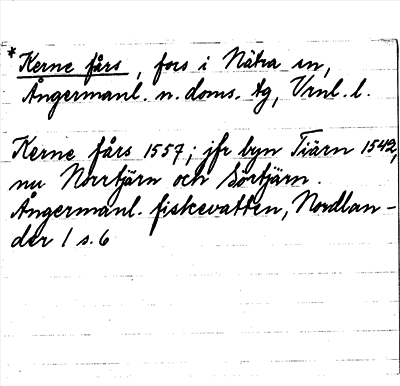 * Kerne fårs, fors i Nätra sn,
Ångermanl. n. doms. tg, Vrnl. l.
Kerne fårs 1557; jfr byn Tiärn 1542,
nu Norrtjärn och Sörtjärn.
Ångermanl. fiskevatten, Nordlan-
der 1 s. 6